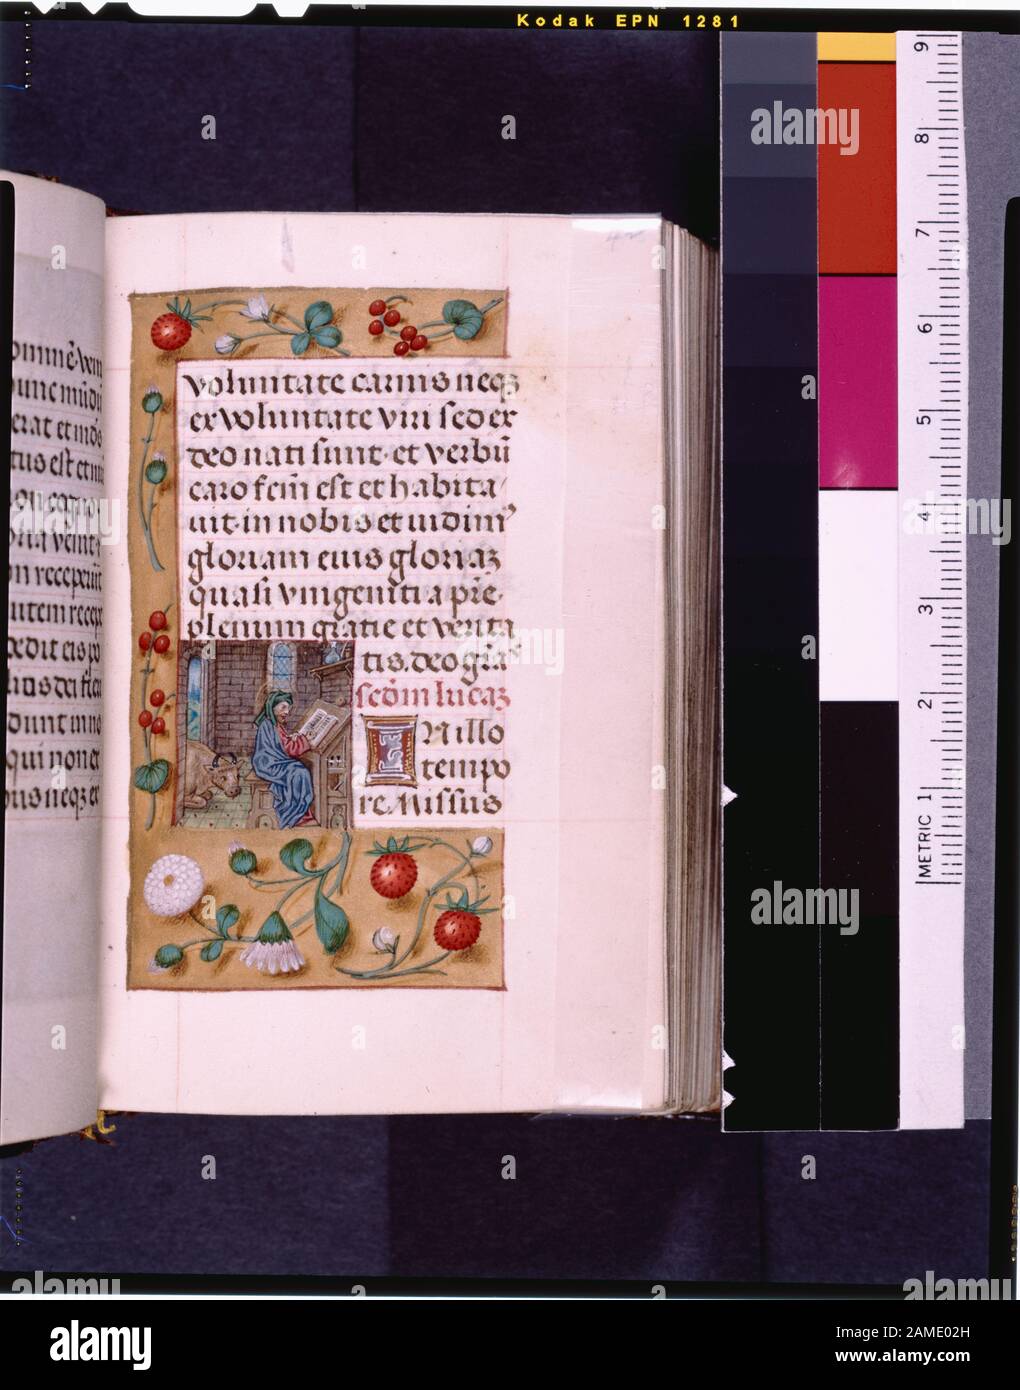 Kodak EPN 1281
omnē. Vem
unc mūdū
erat et mūds
tus est et mū
on cogno
ria venit
on receperūt
utem recep
dedit eis po
atis dei fieri
dunt in no
qui non ex
bus neqȝ ex
voluntate carnis neqȝ
ex voluntate viri sed ex
deo nati sunt. et verbū
caro fcm̄ est et habita
uit in nobis et uidim᾽
gloriam eius gloriaȝ
quasi vnigeniti a pr̄e.
plenum gratie et verita
tis. deo gr̄a᾽
scd̄m lucaȝ
IN illo
tempo
re. Missus
9
8
7
6
5
4
3
2
METRIC 1
a
alamy
alamy
Image ID: 2AME02H
www.alamy.com